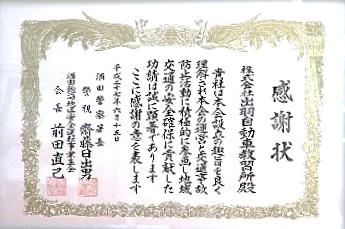 感謝状
株式会社出羽自動車教習所殿
貴社は本会設立の趣旨を良く
理解され本会の運営と交通事故
防止活動に積極的に参画し地域
交通の安全確保に貢献した
功績は誠に顕著であります
ここに感謝の意を表します
平成二十七年六月十五日
酒田警察署長
警視 齋藤日出男
酒田飽海地区安全運転管理者会
会長 前田直己